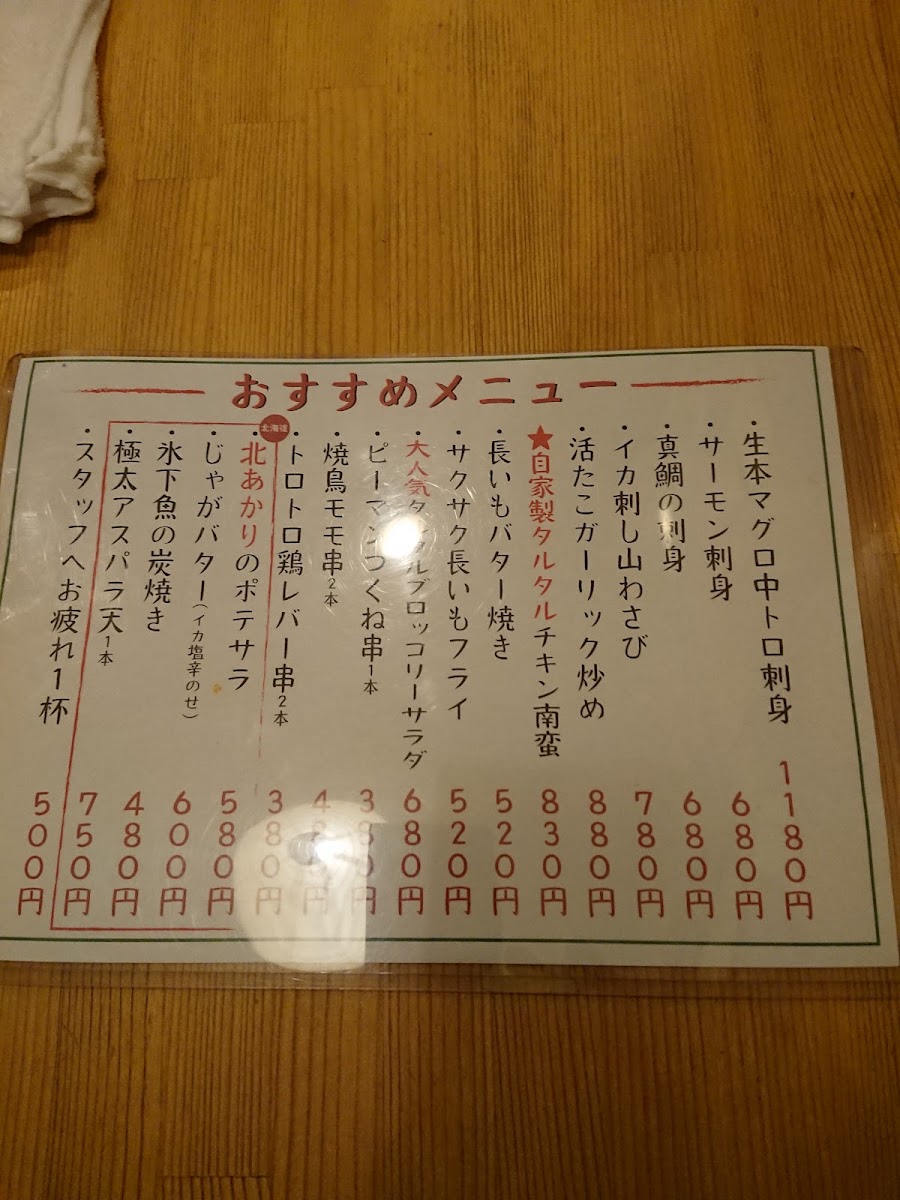 おすすめメニュー
・生本マグロ中トロ刺身 1180円
・サーモン刺身 680円
・真鯛の刺身 680円
・イカ刺し山わさび 780円
・活たこガーリック炒め 880円
★自家製タルタルチキン南蛮 830円
・長いもバター焼き 520円
・サクサク長いもフライ 520円
・大人気タルタルブロッコリーサラダ 680円
・ピーマンつくね串1本 380円
・焼鳥モモ串2本
・トロトロ鶏レバー串2本 380円
北海道
・北あかりのポテサラ 580円
・じゃがバター(イカ塩辛のせ) 600円
・氷下魚の炭焼き 480円
・極太アスパラ天1本 750円
・スタッフへお疲れ1杯 500円